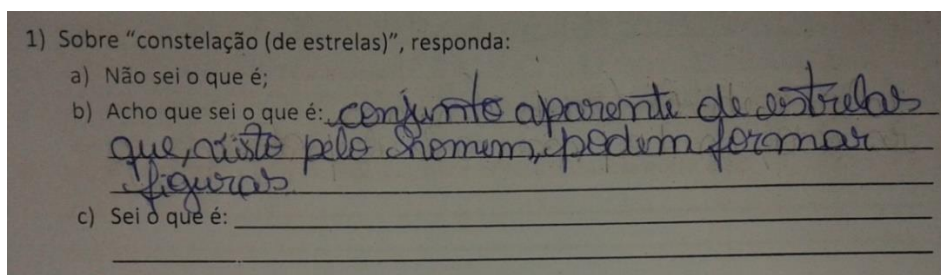 1) Sobre “constelação (de estrelas)”, responda:
a) Não sei o que é;
b) Acho que sei o que é: conjunto aparente de estrelas
que, visto pelo homem, podem formar
figuras
c) Sei o que é: